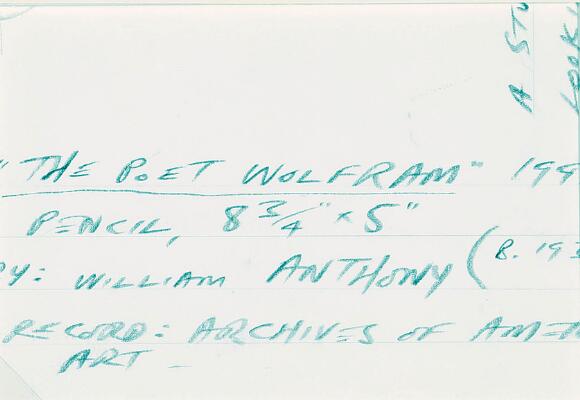 "THE POET WOLFRAM" 199
PENCIL, 8 3/4" x 5"
BY: WILLIAM ANTHONY (B. 193
RECORD: ARCHIVES OF AMER
ART -
A STU
LOOK